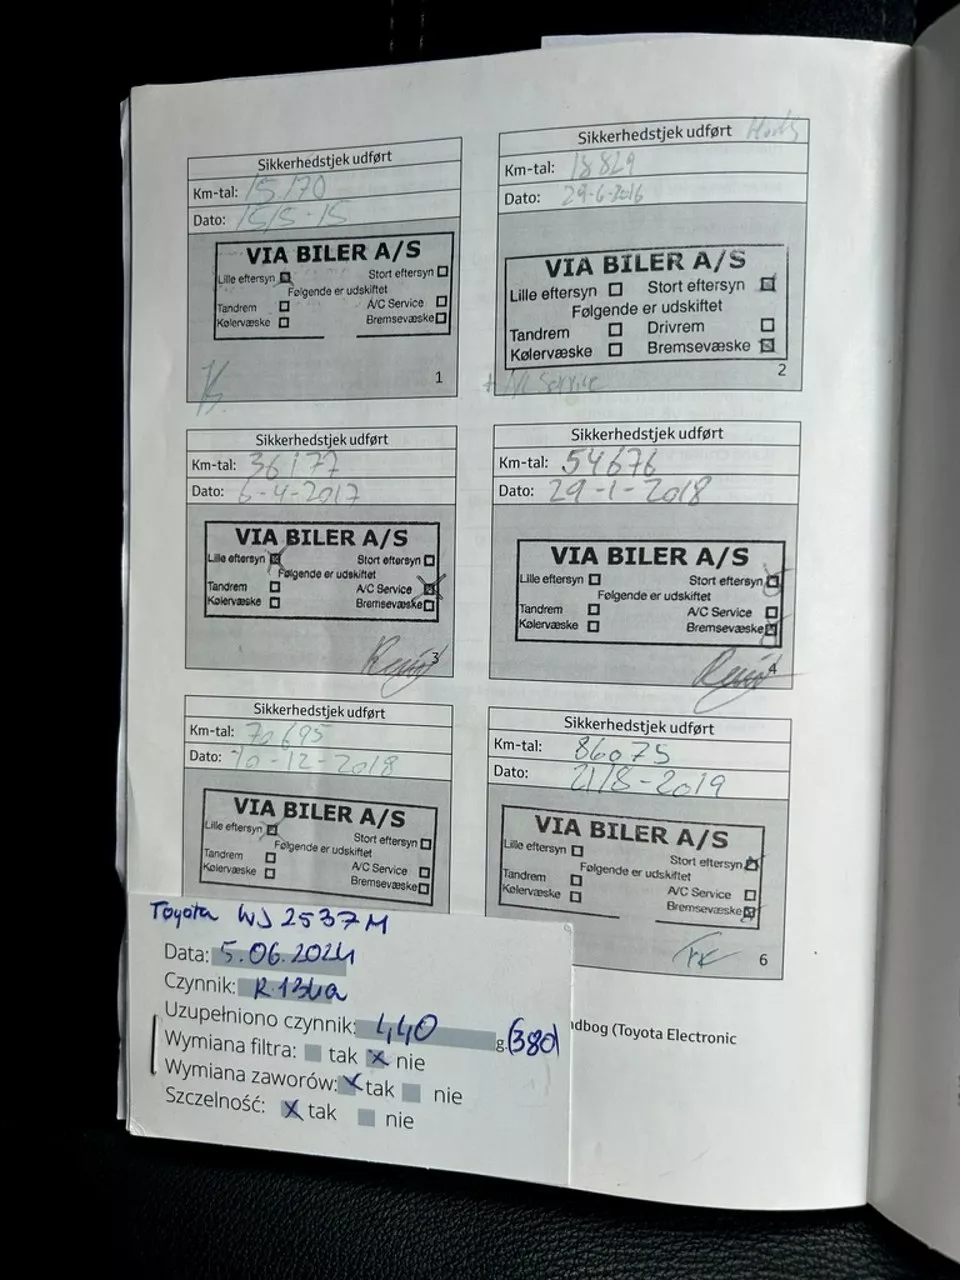 Sikkerhedstjek udført
Km-tal: 15.170
Dato: 15/5-15
VIA BILER A/S
Lille eftersyn Stort eftersyn
Følgende er udskiftet
Tandrem A/C Service
Kølervæske Bremsevæske
1
Sikkerhedstjek udført
Km-tal: 18829
Dato: 29-6-2016
VIA BILER A/S
Lille eftersyn Stort eftersyn
Følgende er udskiftet
Tandrem Drivrem
Kølervæske Bremsevæske
+ A/C Service
2
Sikkerhedstjek udført
Km-tal: 36177
Dato: 6-4-2017
VIA BILER A/S
Lille eftersyn Stort eftersyn
Følgende er udskiftet
Tandrem A/C Service
Kølervæske Bremsevæske
3
Sikkerhedstjek udført
Km-tal: 54676
Dato: 29-1-2018
VIA BILER A/S
Lille eftersyn Stort eftersyn
Følgende er udskiftet
Tandrem A/C Service
Kølervæske Bremsevæske
4
Sikkerhedstjek udført
Km-tal: 70695
Dato: 10-12-2018
VIA BILER A/S
Lille eftersyn Stort eftersyn
Følgende er udskiftet
Tandrem A/C Service
Kølervæske Bremsevæske
Sikkerhedstjek udført
Km-tal: 86075
Dato: 21/8-2019
VIA BILER A/S
Lille eftersyn Stort eftersyn
Følgende er udskiftet
Tandrem A/C Service
Kølervæske Bremsevæske
6
dbog (Toyota Electronic
Toyota WJ 2537M
Data: 5.06.2024
Czynnik: R134a
Uzupełniono czynnik: 440 g (380)
Wymiana filtra: tak x nie
Wymiana zaworów: x tak nie
Szczelność: x tak nie